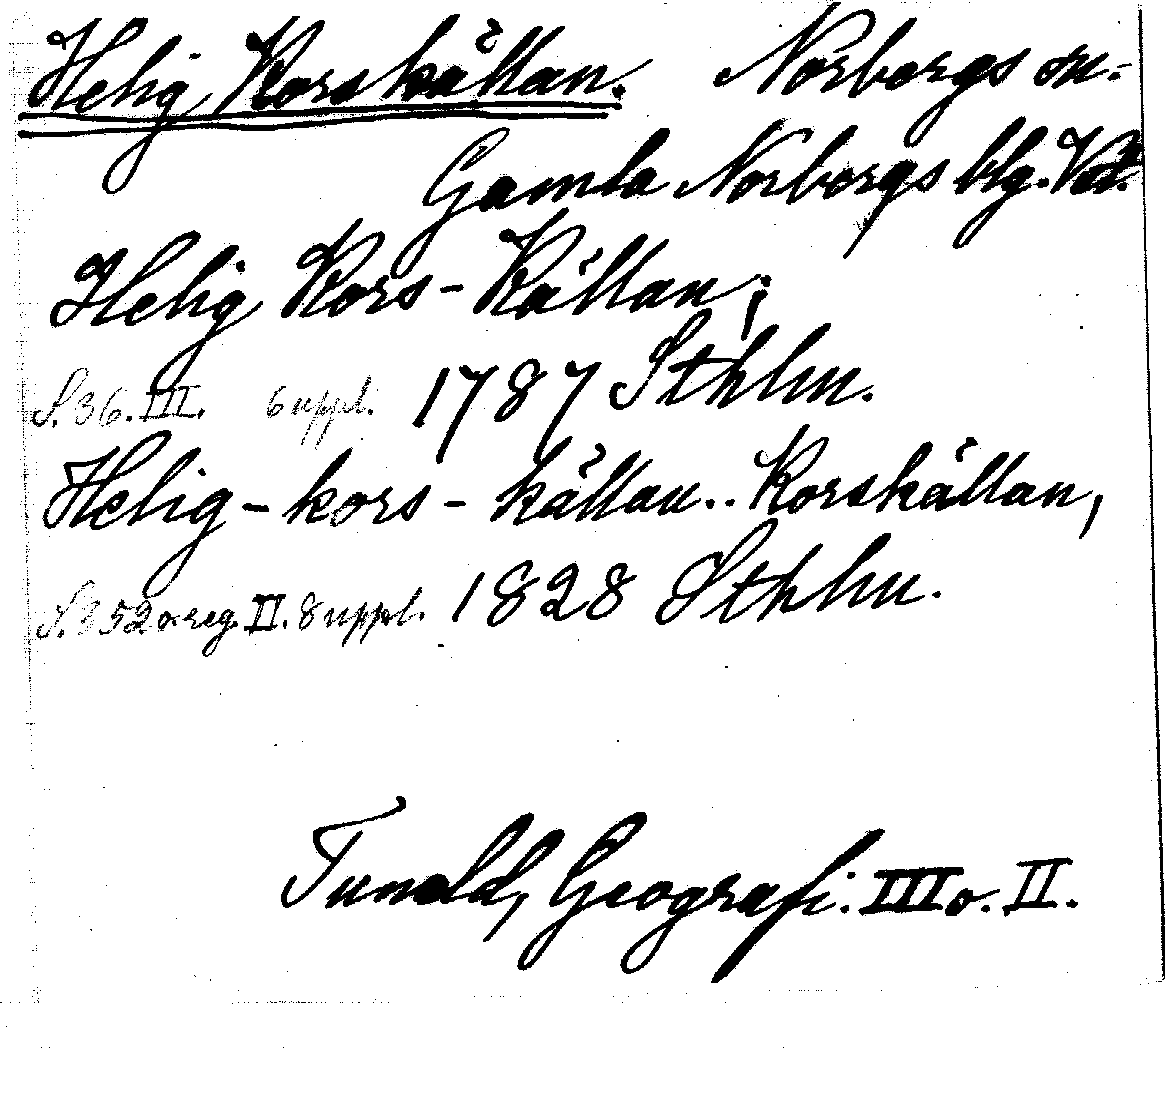 Helig Korskällan. Norbergs sn.
Gamla Norbergs blg. Vst.
Helig Kors-Källan;
S. 36. III. 6 uppl. 1787 Sthlm.
Helig-kors-källan.. Korskällan,
S. 352 o. reg. II. 8 uppl. 1828 Sthlm.
Tuneld, Geografi. III o. II.